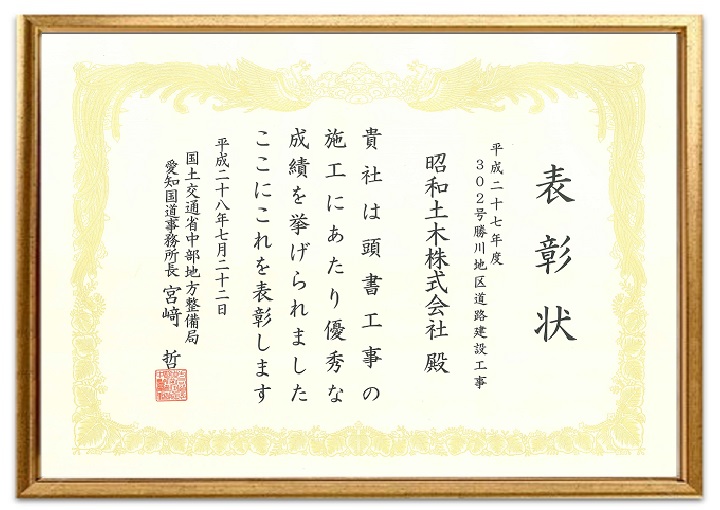 表彰状
平成二十七年度
302号勝川地区道路建設工事
昭和土木株式会社 殿
貴社は頭書工事の
施工にあたり優秀な
成績を挙げられました
ここにこれを表彰します
平成二十八年七月二十二日
国土交通省中部地方整備局
愛知国道事務所長 宮﨑 哲